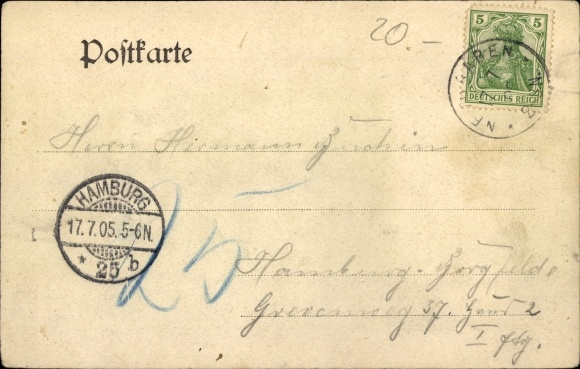 Postkarte
20.-
5 5
DEUTSCHES REICH
Herrn Hermann
HAMBURG
17.7.05. 5-6N.
* 25 b
25
Hamburg-Borgfelde
Grevenweg 37. Haus 2
I Etg.